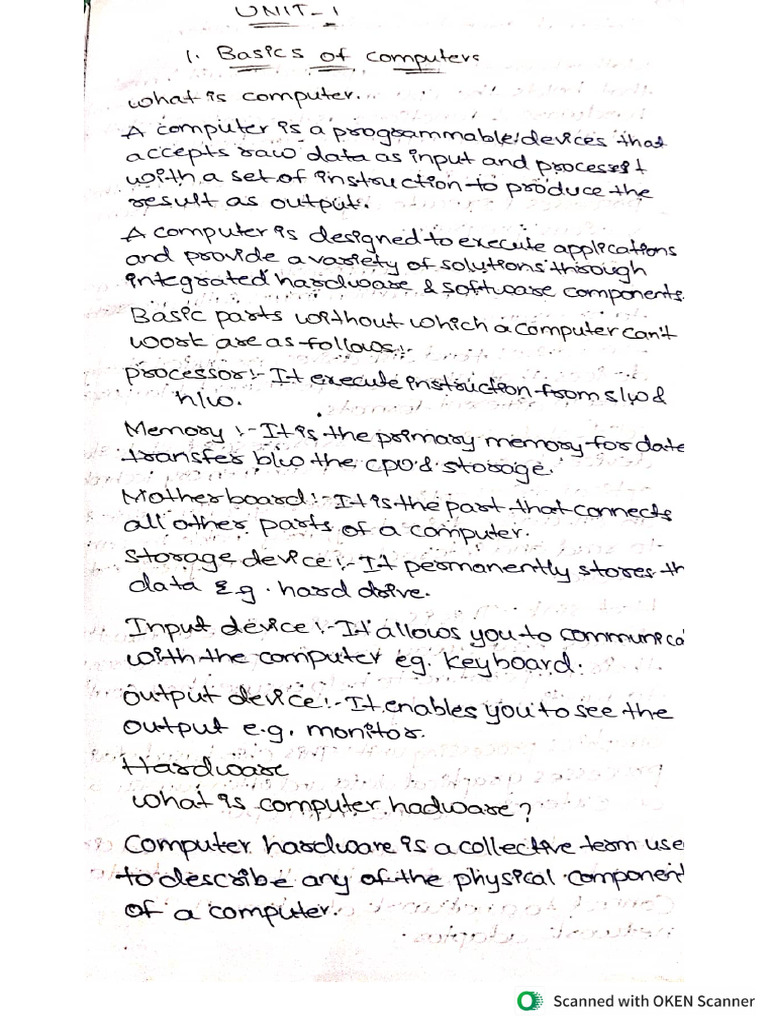 UNIT-1
1. Basics of computers
what is computer...
A computer is a programmable devices that
accepts raw data as input and process it
with a set of instruction to produce the
result as output.
A computer is designed to execute applications
and provide a variety of solutions through
integrated hardware & software components.
Basic parts without which a computer can't
work are as follows:-
processor:- It execute instruction from s/w &
h/w.
Memory :- It is the primary memory for date
transfer b/w the CPU & storage.
Motherboard:- It is the part that connects
all other parts of a computer.
Storage device :- It permanently stores th
data E.g. hard drive.
Input device :- It allows you to communica
with the computer eg. keyboard.
output device:- It enables you to see the
output e.g. monitor.
Hardware
what is computer hadware?
Computer hardware is a collective term use
to describe any of the physical component
of a computer.
Scanned with OKEN Scanner